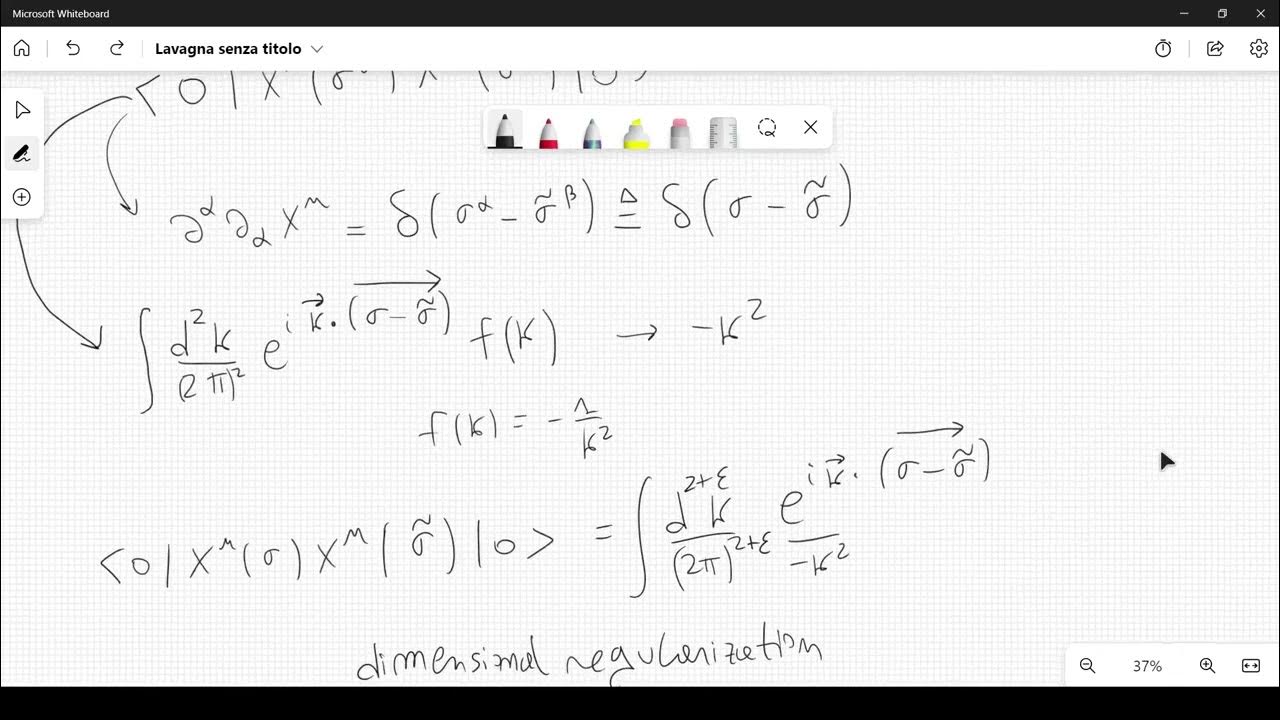 Microsoft Whiteboard
Lavagna senza titolo
∂^α ∂_α X^μ = δ(σ^α - σ̃^β) ≜ δ(σ - σ̃)
∫ d²k/(2π)² e^{i k⃗·(σ - σ̃)} f(k) → -k²
f(k) = - 1/k²
<0|X^μ(σ) X^μ(σ̃)|0> = ∫ d^{2+ε}k/(2π)^{2+ε} e^{i k⃗·(σ - σ̃)}/-k²
dimensional regularization
37%